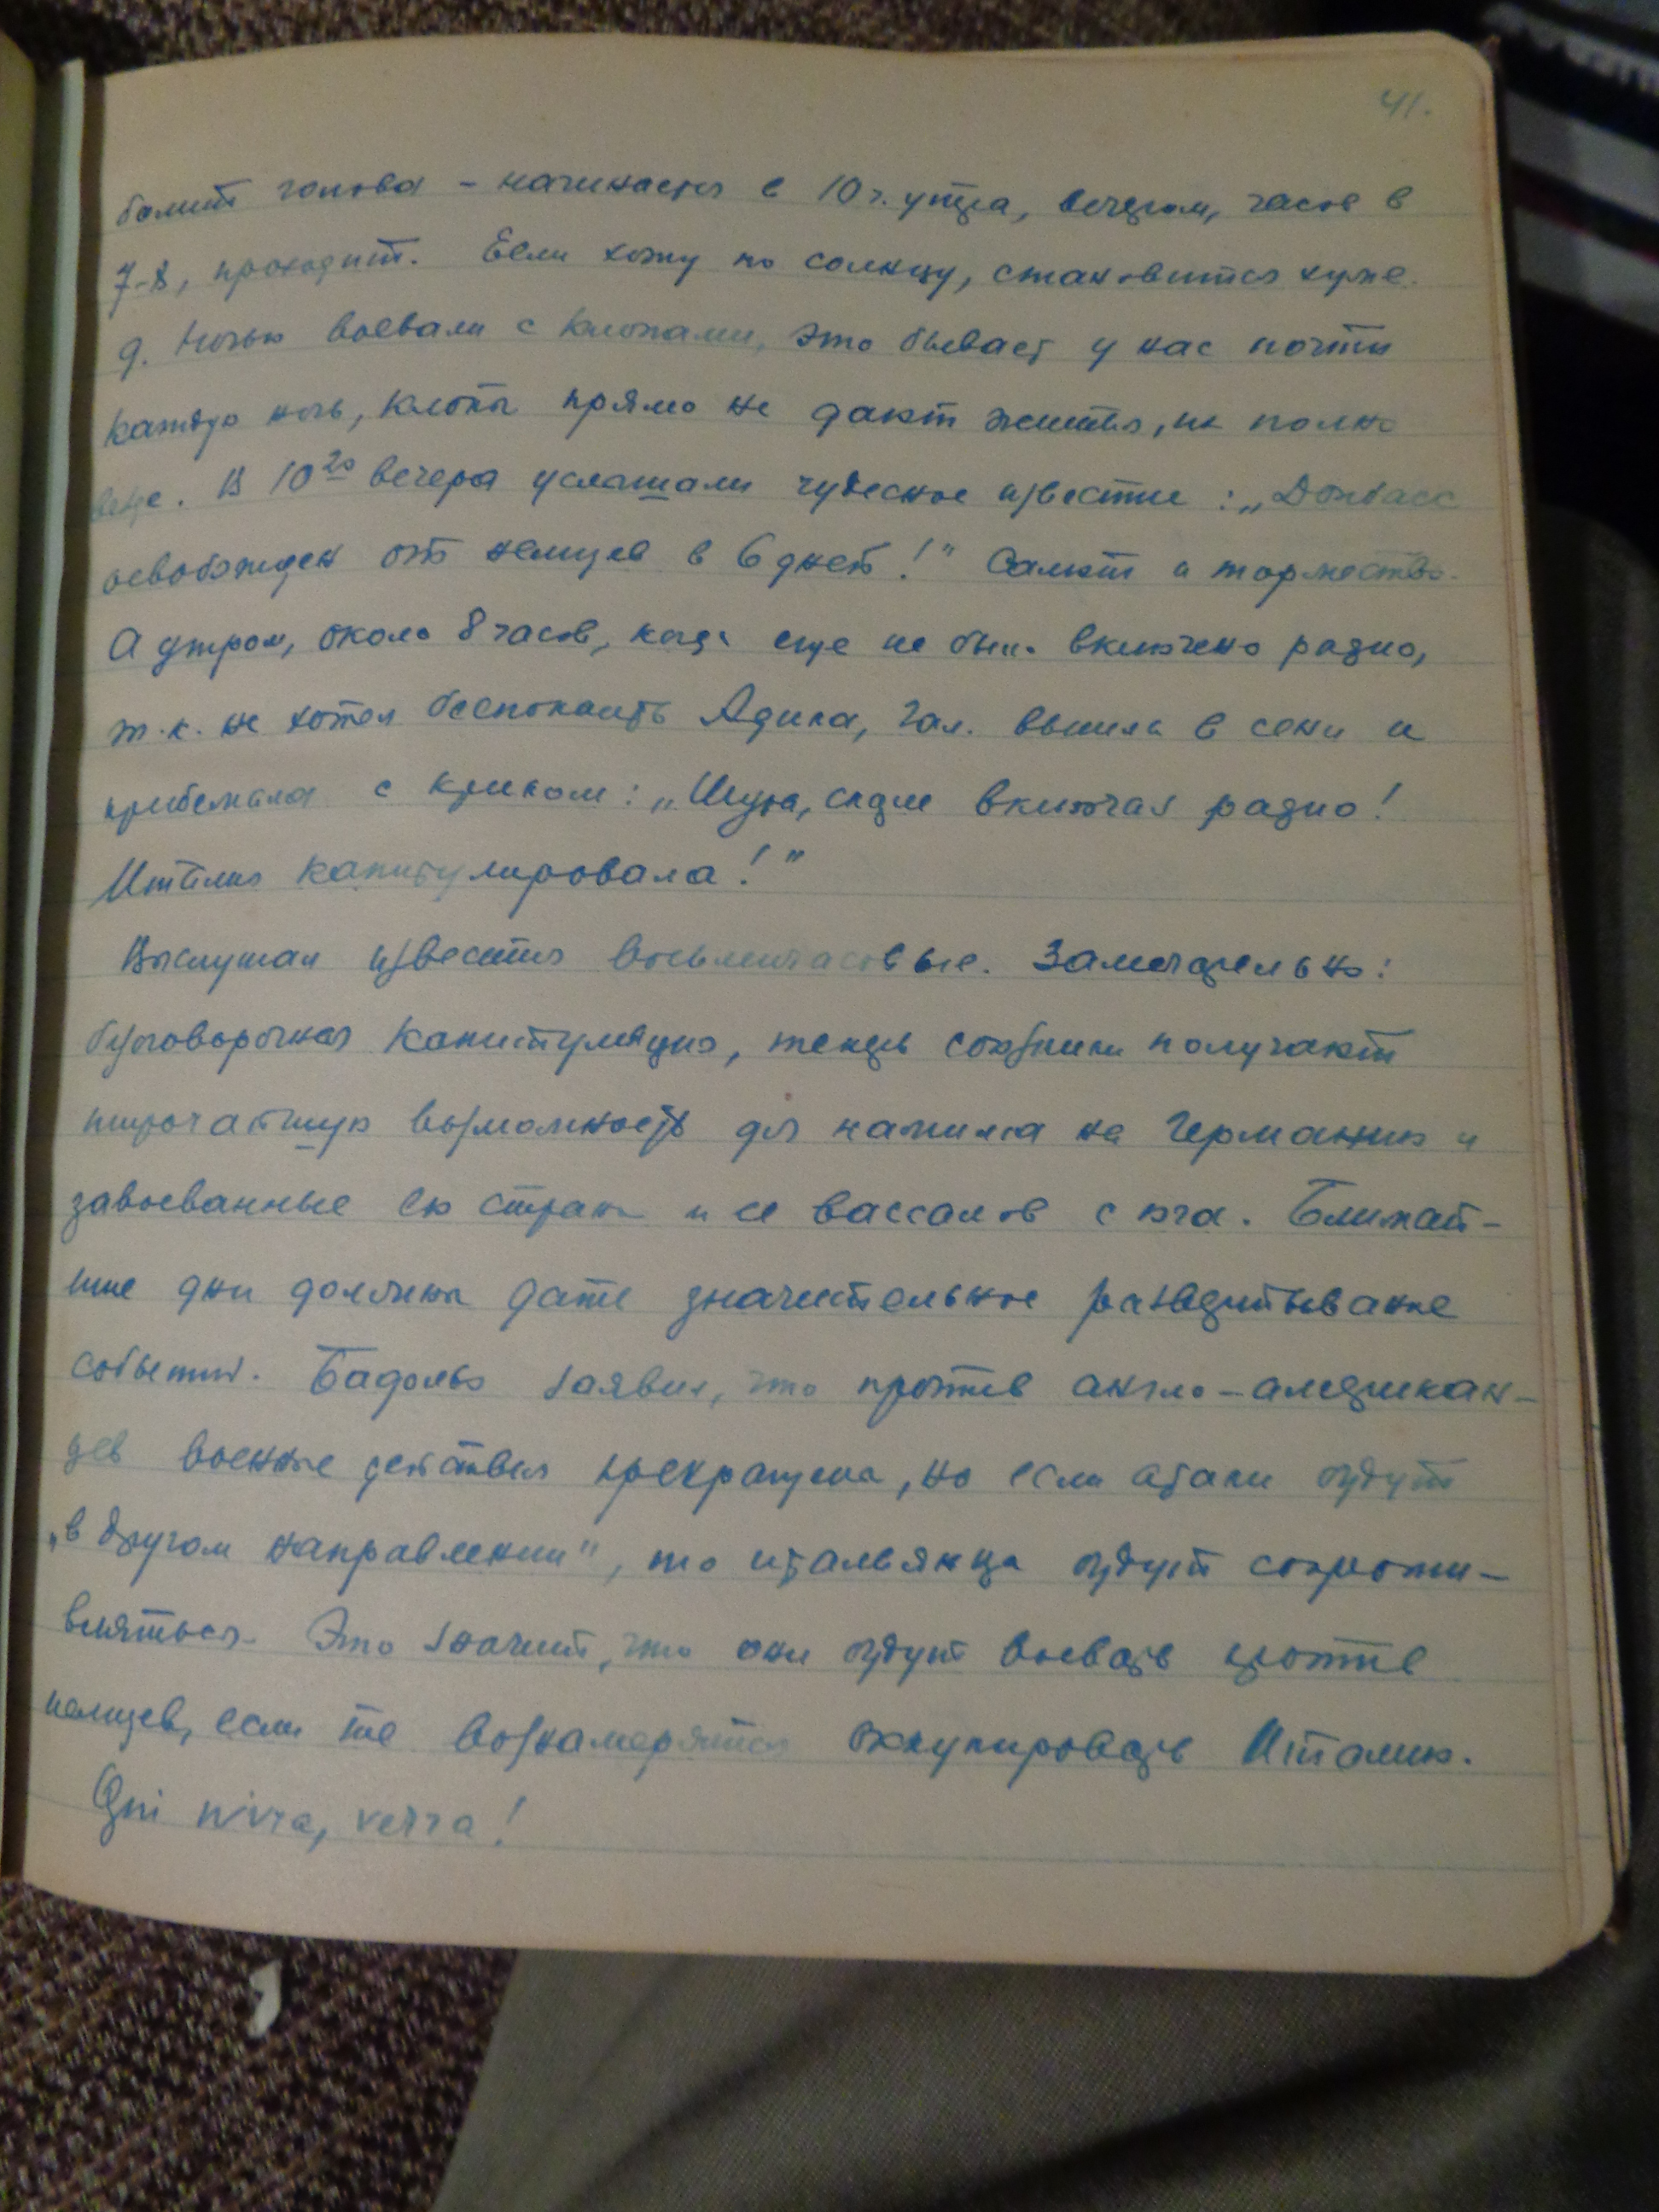 41.
болит голова – начинается в 10 ч. утра, вечером, часов в
7-8, проходит. Если хожу по солнцу, становится хуже.
9. Ночью воевали с клопами, это бывает у нас почти
каждую ночь, клопы прямо не дают житья, их полно
везде. В 10²⁰ вечера услышали чудесное известие: „Донбасс
освобожден от немцев в 6 дней!" Салют и торжество.
А утром, около 8 часов, когда еще не было включено радио,
т.к. не хотел беспокоить Адика, Гал. вышла в сени и
прибежала с криком: „Шура, скорее включай радио!
Италия капитулировала!"
Выслушал известия восьмичасовые. Замечательно:
безоговорочная капитуляция, теперь союзники получают
широчайшую возможность для нажима на Германию и
завоеванные ею страны и ее вассалов с юга. Ближай-
шие дни должны дать значительное развертывание
событий. Бадольо заявил, что против англо-американ-
цев военные действия прекращены, но если атаки будут
„в другом направлении", то итальянцы будут сопроти-
вляться. Это значит, что они будут воевать против
немцев, если те вознамерятся оккупировать Италию.
Qui vivra, verra!